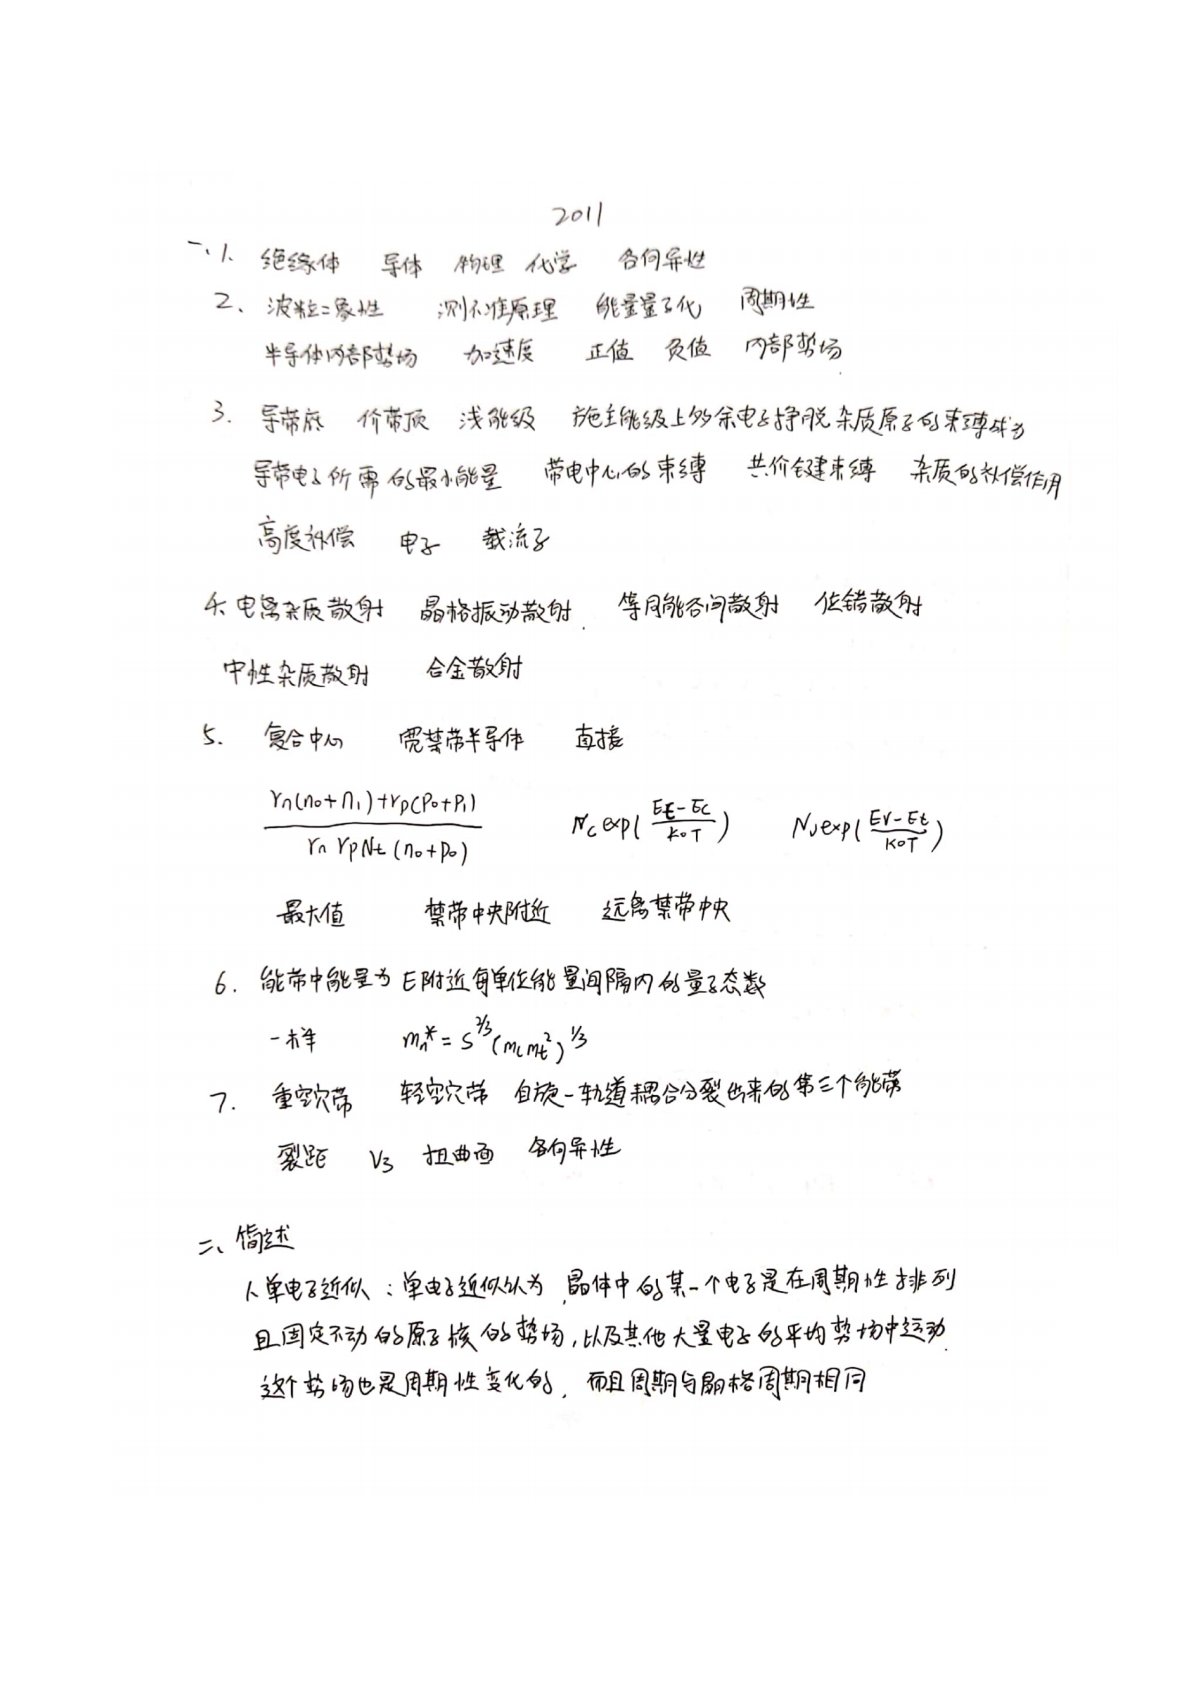 2011
一、1. 绝缘体 导体 物理 化学 各向异性
2、波粒二象性 测不准原理 能量量子化 周期性
半导体内部势场 加速度 正值 负值 内部势场
3. 导带底 价带顶 浅能级 施主能级上多余电子挣脱杂质原子的束缚成为
导带电子所需的最小能量 带电中心的束缚 共价键束缚 杂质的补偿作用
高度补偿 电子 载流子
4. 电离杂质散射 晶格振动散射 等同能谷间散射 位错散射
中性杂质散射 合金散射
5. 复合中心 宽禁带半导体 直接
\frac{r_n(n_0+n_1)+r_p(p_0+p_1)}{r_n r_p N_t (n_0+p_0)} N_c exp(\frac{E_t-E_c}{k_0T}) N_v exp(\frac{E_v-E_t}{k_0T})
最大值 禁带中央附近 远离禁带中央
6. 能带中能量为E附近每单位能量间隔内的量子态数
一样 m_n^* = s^{2/3}(m_l m_t^2)^{1/3}
7. 重空穴带 轻空穴带 自旋-轨道耦合分裂出来的第三个能带
裂距 V_3 扭曲面 各向异性
二、简述
1. 单电子近似：单电子近似认为，晶体中的某一个电子是在周期性排列
且固定不动的原子核的势场，以及其他大量电子的平均势场中运动.
这个势场也是周期性变化的，而且周期与晶格周期相同